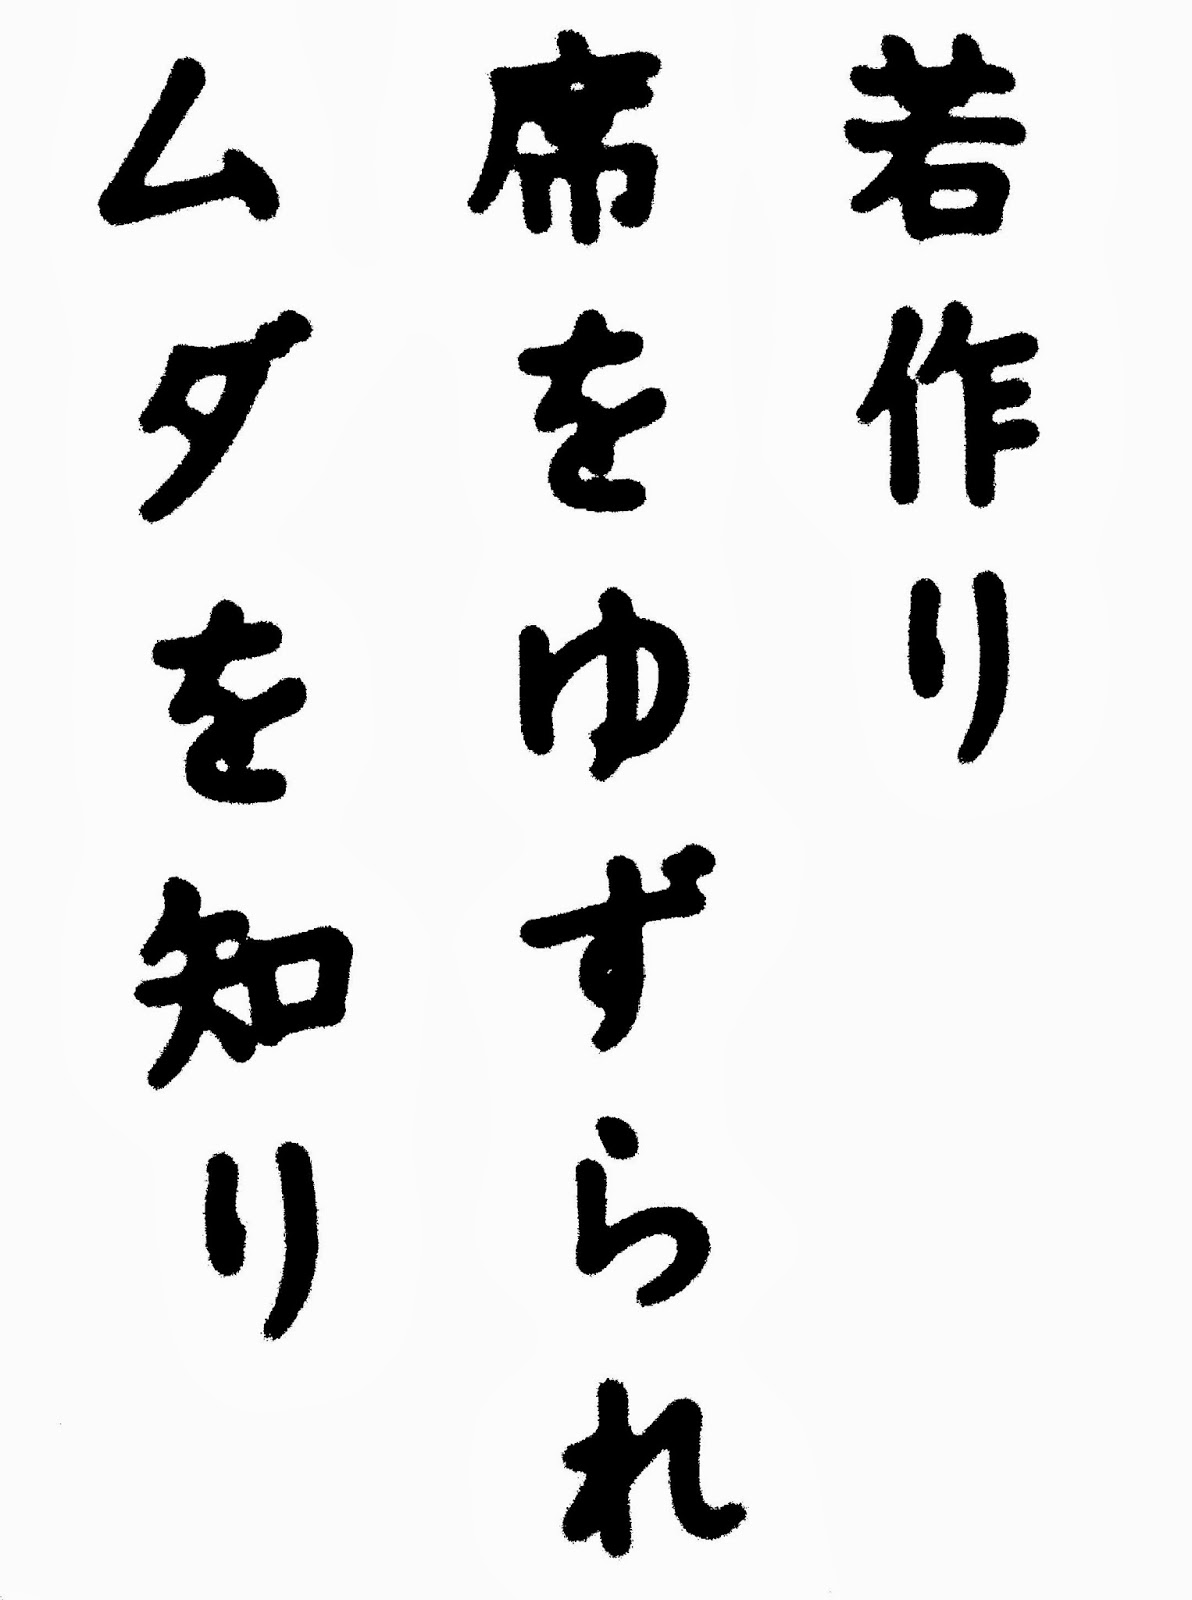 若作り
席をゆずられ
ムダを知り